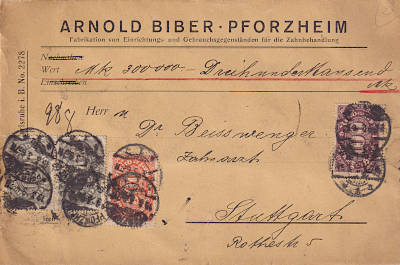 ARNOLD BIBER · PFORZHEIM
Fabrikation von Einrichtungs- und Gebrauchsgegenständen für die Zahnbehandlung
Nachnahme
Wert Mk 300000.- Dreihunderttausend
Mk.
Einschreiben
Karlsruhe i. B. No. 2278
98 g
Herrn
Dr Beisswenger
Zahnarzt
Stuttgart
Rothestr 5